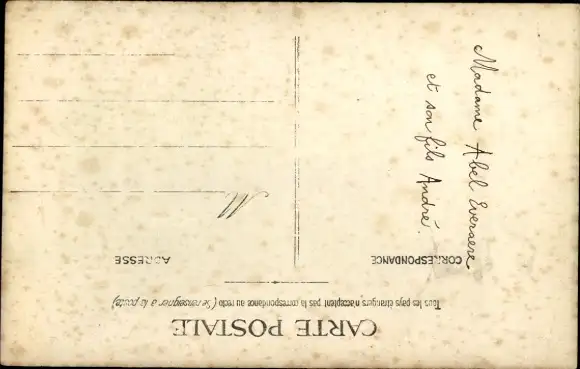 CARTE POSTALE
Tous les pays étrangers n'acceptent pas la correspondance au recto (Se renseigner à la poste)
CORRESPONDANCE
ADRESSE
M
Madame Abel Everaere
et son fils André.